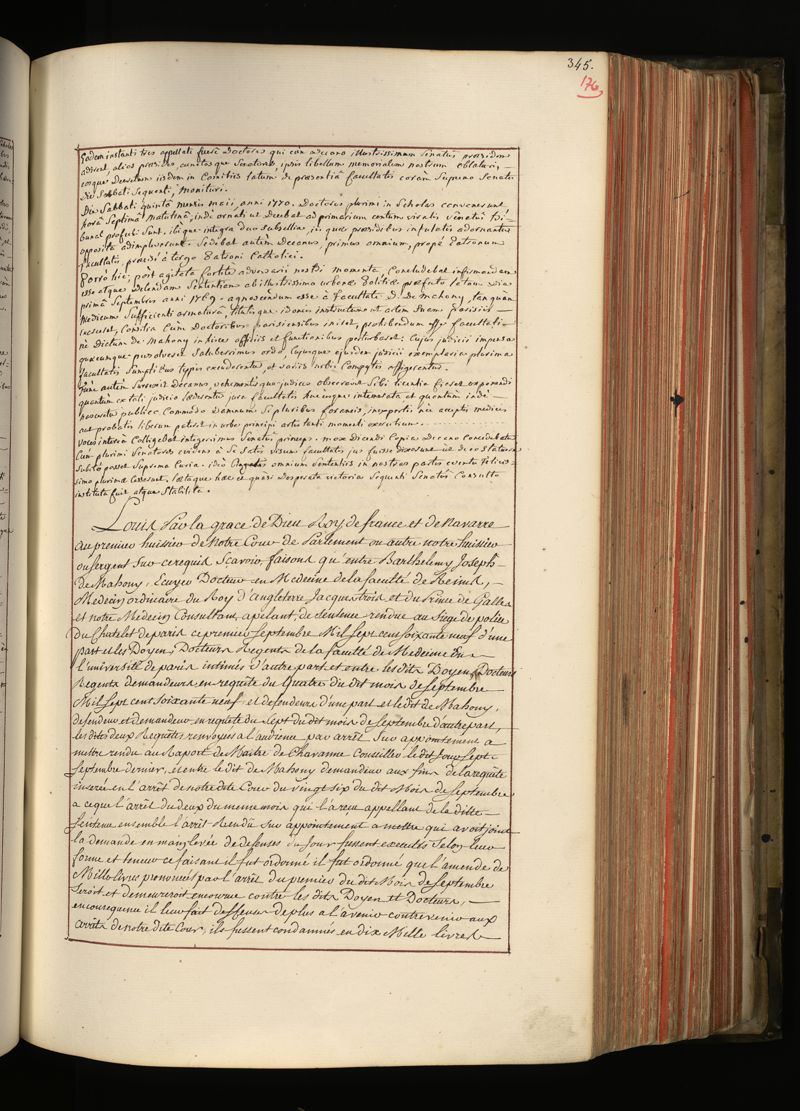 345.
176
Eadem instanti tres appellati fuere Doctores qui cum decano illustrissimum Senatus praesidem
adirent, alios praesides, cunctosque Senatores ipsis libellum memorialem nostrum oblaturi,
eosque Decretum iisdem in Comitiis latum de praesentia facultatis coram Supremo Senatu
die Sabbati Sequenti, monituri.
Die Sabbati quinta mensis maii, anni 1770. Doctores plurimi in Scholas convenerunt
hora Septima matutina, inde ornati ut decebat ad primarium centum viralis Senatus Tri-
bunal profecti Sunt. ibique integra duo subsellia, in quae praesidibus infulatis adornantur
opposita adimpleverunt. Sedebat autem Decanus, primus omnium, prope Patronum
facultatis, praesidi à tergo Patroni Catholici.
Porrò hic, post agitata fortitè adversarii nostri momenta, Concludebat infirmandam
esse atque Delendam Sententiam ab illustrissimo urbanae Politiae praefecto latam die
primâ Septembris anni 1769. agnoscendum esse à facultate D. De Mahony, tanquam
Medicum Sufficienti armatura, titulisque idoneis instructum ut artem Suam parisiis
exerceret, Consilia Cum Doctoribus parisiensibus iniret, prohibendum esse facultati
ne Dictum de Mahony in hisce officiis et functionibus perturbaret. Cujus judicii impensa
quaecumque persolveret Saluberrimus ordo, Cujusque ejusdem judicii exemplaria plurima
facultatis Sumptibus typis excuderentur, et variis urbis Compitis affigerentur.
Tunc autem Surrexit Decanus, vehementerque judices observavit Sibi licentia fieret exponendi
quantùm ex tali judicio laederentur jura facultatis hucusque intemerata et quantum inde
nasceretur publico Commodo Damnum Si pluribus foraneis, inexpertis nec acceptis medicis
aut probatis liberum pateret in urbe principi artis tanti momenti exercitium.
voces interim Colligebat integerrimus Senatus princeps. mox dicendi Copia decano concedebatur
Cum plurimi Senatores evidens à Se Satis visum facultatis jus fuisse dixerunt ut de eo Statuere
Subitò posset Suprema Curia. ideò Cogitatis omnium Sententiis in nostras partes eventu felicis-
simo plurimae Cesserunt, laetaque haec et quasi Desperata victoria Sequenti Senatus Consulto
instituta fuit atque Stabilita.
Louis Par la grace de Dieu Roy de france et de Navarre
au premier huissier de Notre Cour de Parlement ou autre notre huissier
ou sergent Sur ce requis Scavoir, faisons qu'entre Barthelemy Joseph
de Mahony, Ecuyer Docteur en Medecine de la faculté de Reims,
Medecin ordinaire du Roy d'angleterre Jacques trois et du Prince de Galles
et notre Medecin Consultant, apelant, de Sentence rendue au Siege de police
du Chatelet de paris ce premier Septembre Mil sept cent soixante neuf d'une
part et les Doyen, Docteurs Regents de la faculté de Medecine En
l'université de paris intimés d'autre part et entre les dits Doyen, Docteurs
Regents demandeurs en requête du Quatre du dit mois de Septembre
Mil Sept cent Soixante neuf et defendeurs d'une part et le dit de Mahony,
defendeur et demandeur en requête du Sept du dit mois de Septembre d'autre part,
les dites deux Requêtes renvoyées a l'audience par arrêt Sur appointement a
mettre rendu au Raport de Maitre de Chavanne Conseiller le dit Jour Sept
Septembre dernier, et entre le dit de Mahony demandeur aux fins de la requête
inserée en l'arrêt de notre dite Cour du vingt six du dit Mois de Septembre
a ce que l'arrêt du deux du meme mois qui l'a reçu appellant de la ditte
Sentence ensemble l'arrêt Rendu Sur appointement a mettre qui avoit joint
la demande en main levée de defenses au jour fussent executés Selon leur
forme et teneur ce faisant il fut ordonné il fut ordonné que l'amende de
Mille livres prononcée par l'arrêt du premier du dit Mois de Septembre
Seroit et demeureroit encourue contre les dits Doyen et Docteurs,
en consequence il leur fait deffenses de plus a l'avenir contrevenir aux
arrêts de notre dite Cour, ils fussent condamnés en dix Mille livres